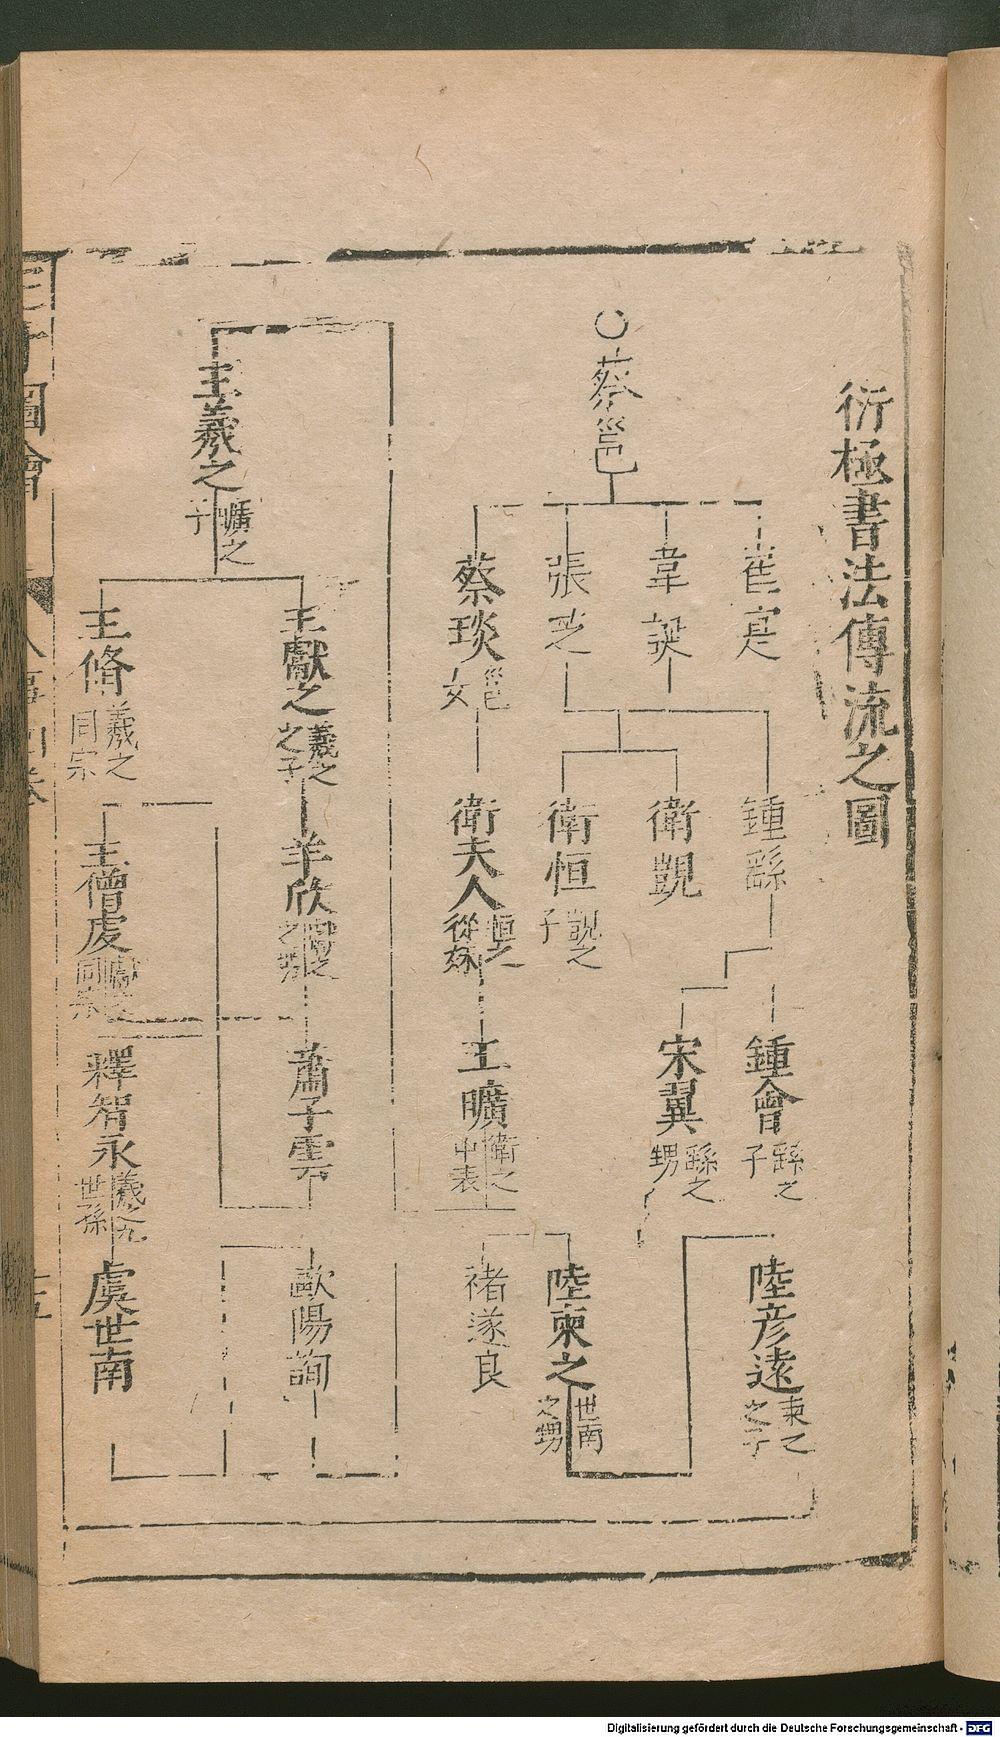 衍極書法傳流之圖
○蔡邕
崔寔
韋誕
張芝
蔡琰邕女
鍾繇
衛覬
衛恒覬之子
衛夫人恒之從妹
鍾會繇之子
宋翼繇之甥
王曠衛之中表
陸彦遠柬之之子
陸柬之世南之甥
褚遂良
王羲之曠之子
王獻之羲之之子
王脩羲之同宗
羊欣獻之之甥
王僧虔獻之同宗
蕭子雲
釋智永羲之九世孫
歐陽詢
虞世南
三才圖會
人事四卷
Digitalisierung gefördert durch die Deutsche Forschungsgemeinschaft - DFG